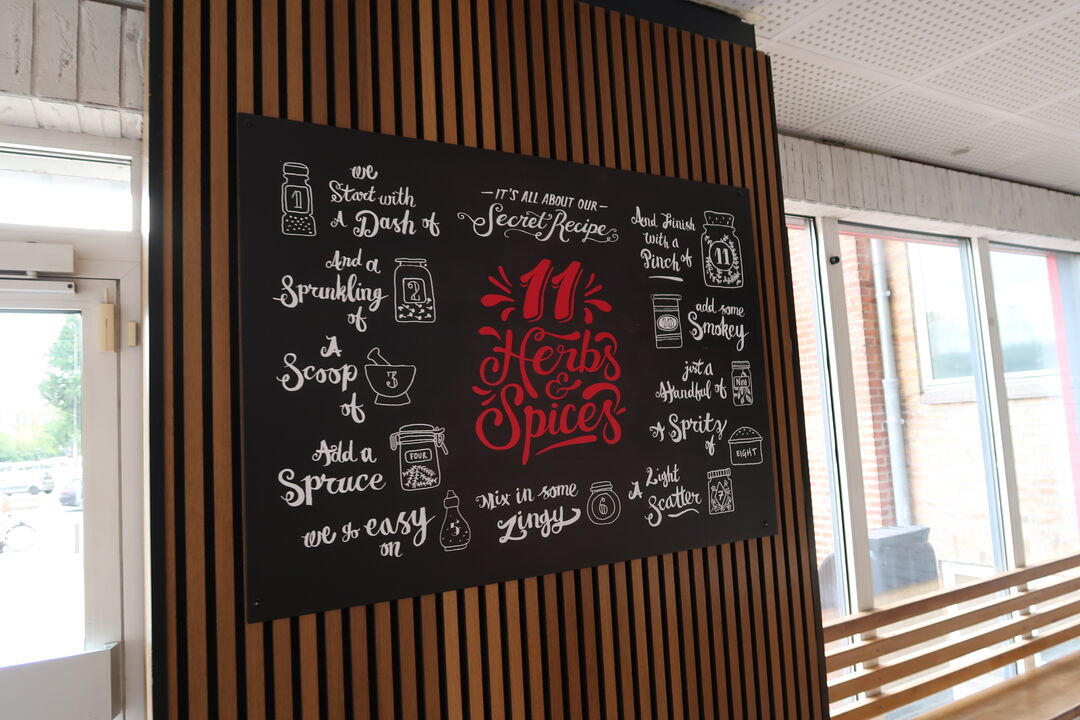 IT'S ALL ABOUT OUR
Secret Recipe
11
Herbs
&
Spices
we
Start with
A Dash of
1
And a
Sprinkling
of
2
A
Scoop
of
3
Add a
Spruce
FOUR
we go easy
on
5
Mix in some
Zingy
6
A Light
Scatter
7
A Spritz
of
EIGHT
just a
Handful of
Nine
add some
Smokey
10
And Finish
With a
Pinch of
11